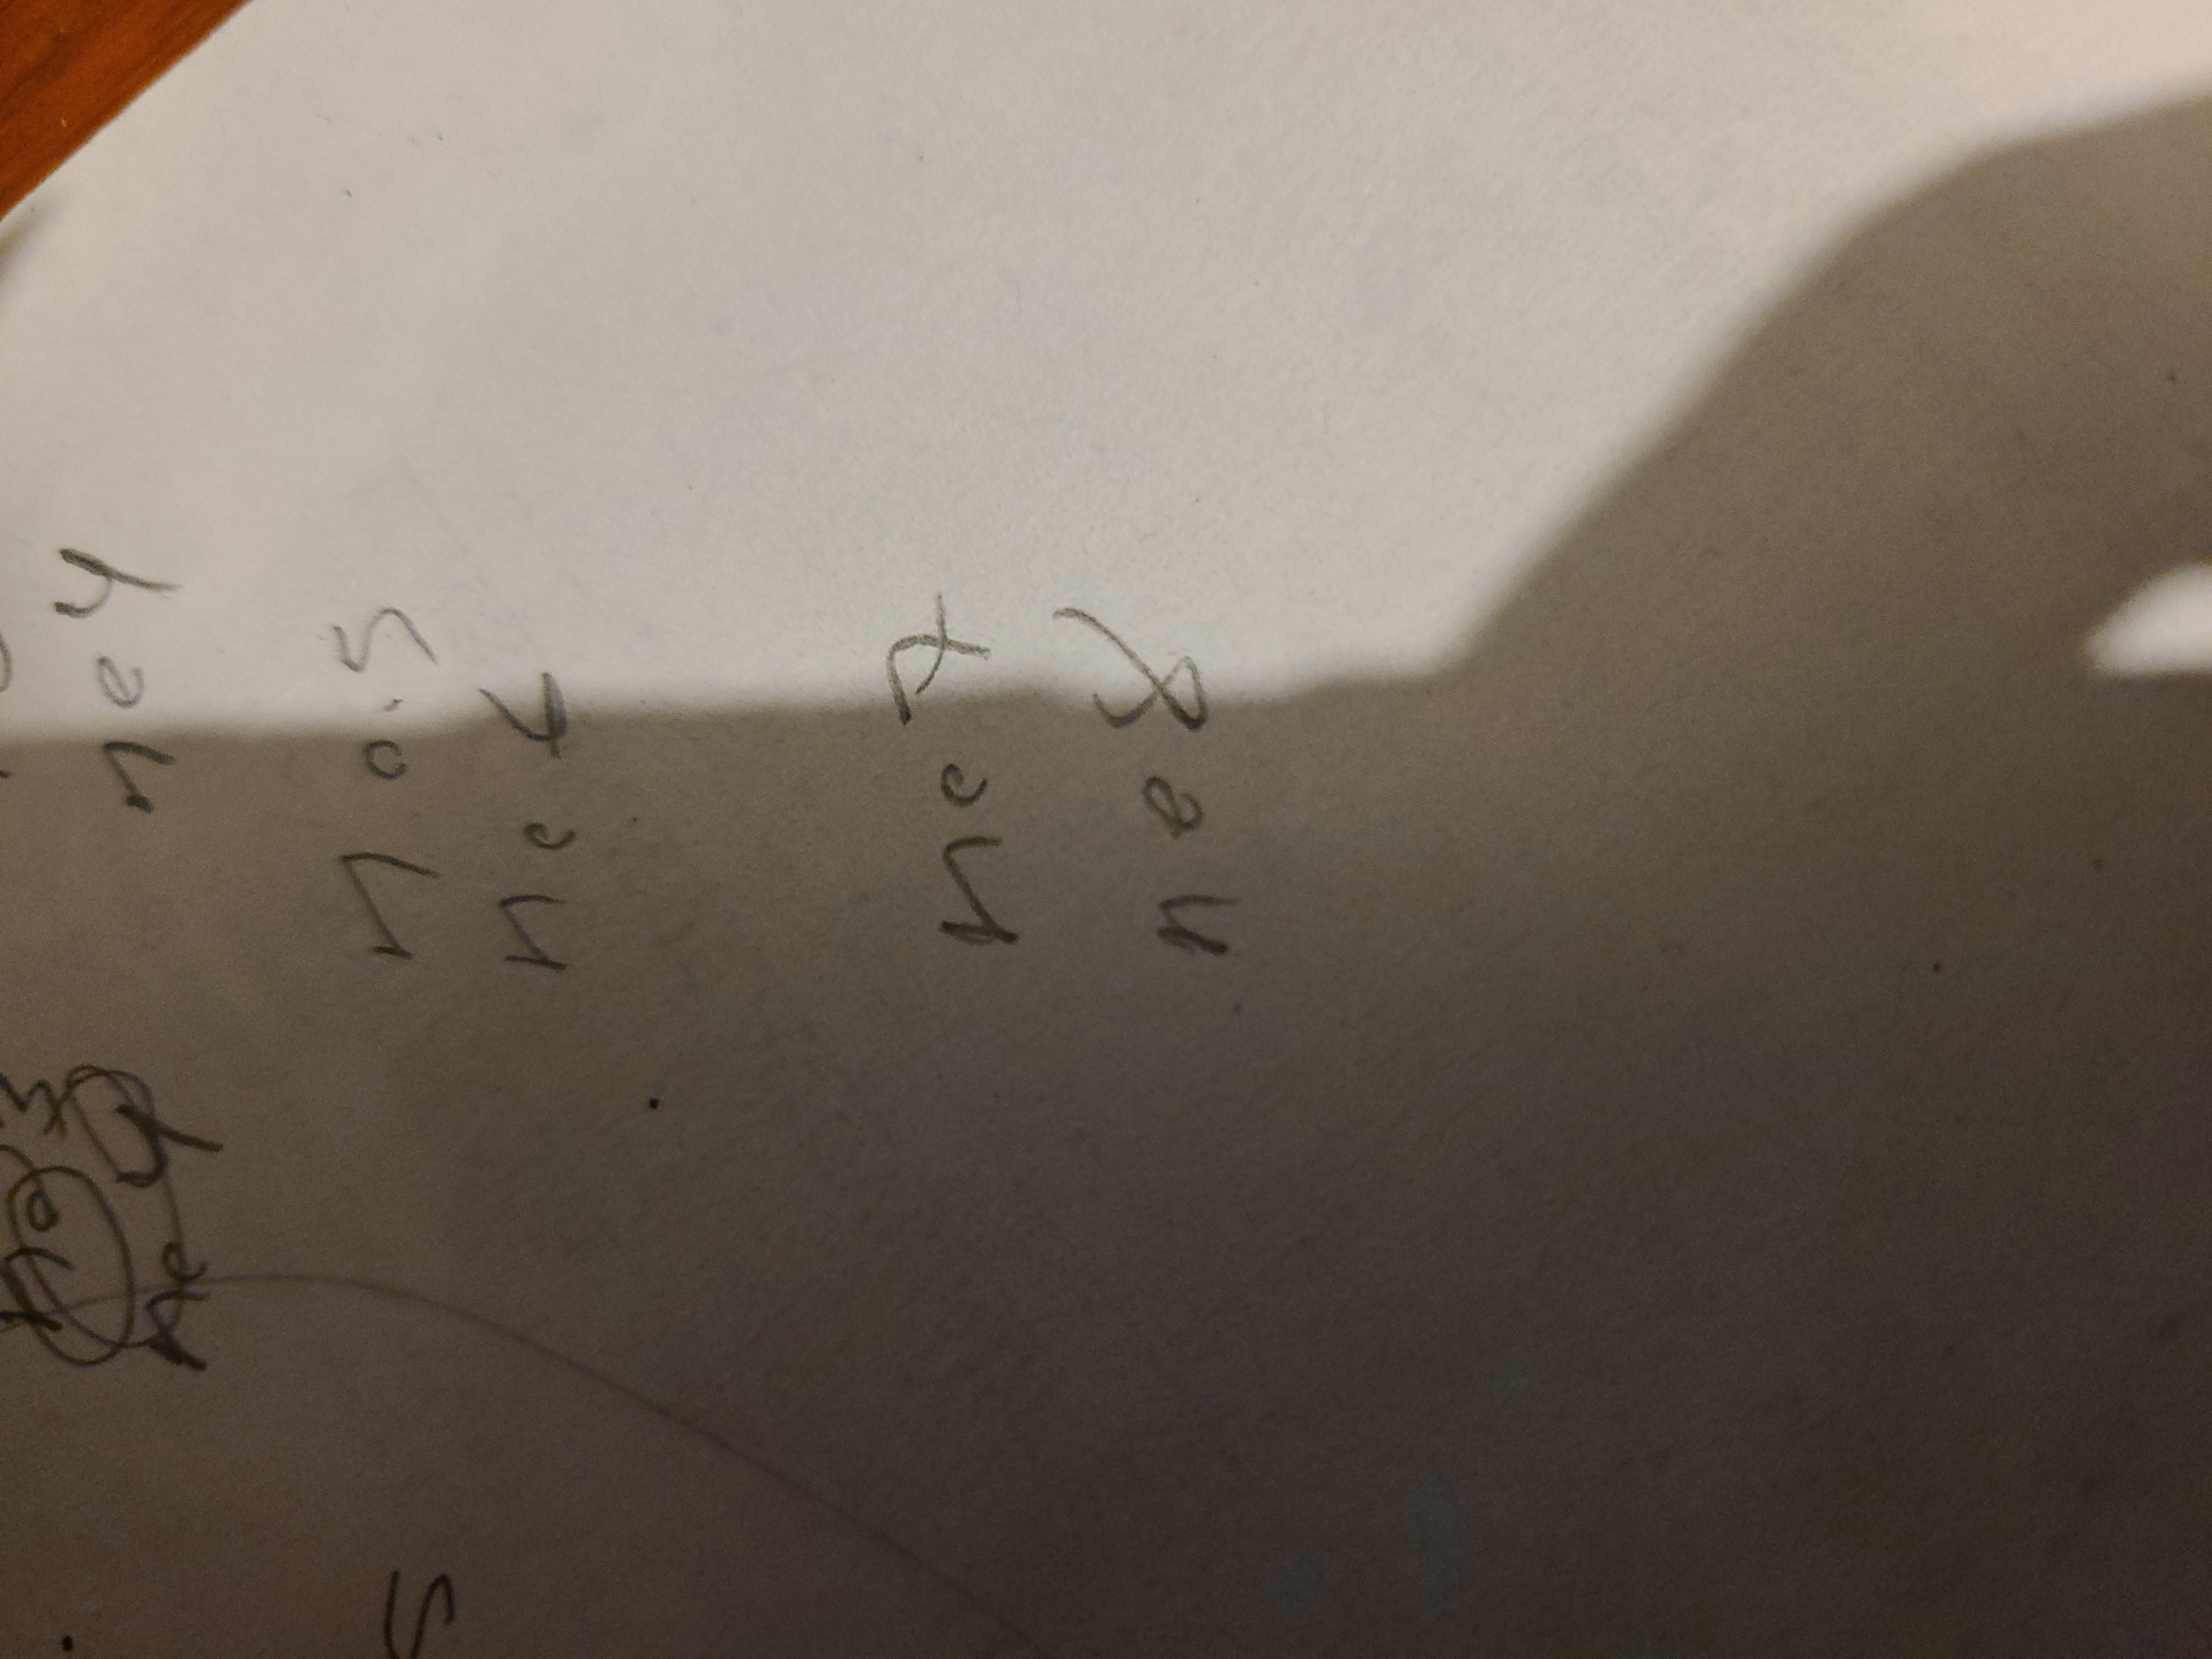 no 3
ne 4
ne 4
5
no.5
ne 6
ne 7
ne 8